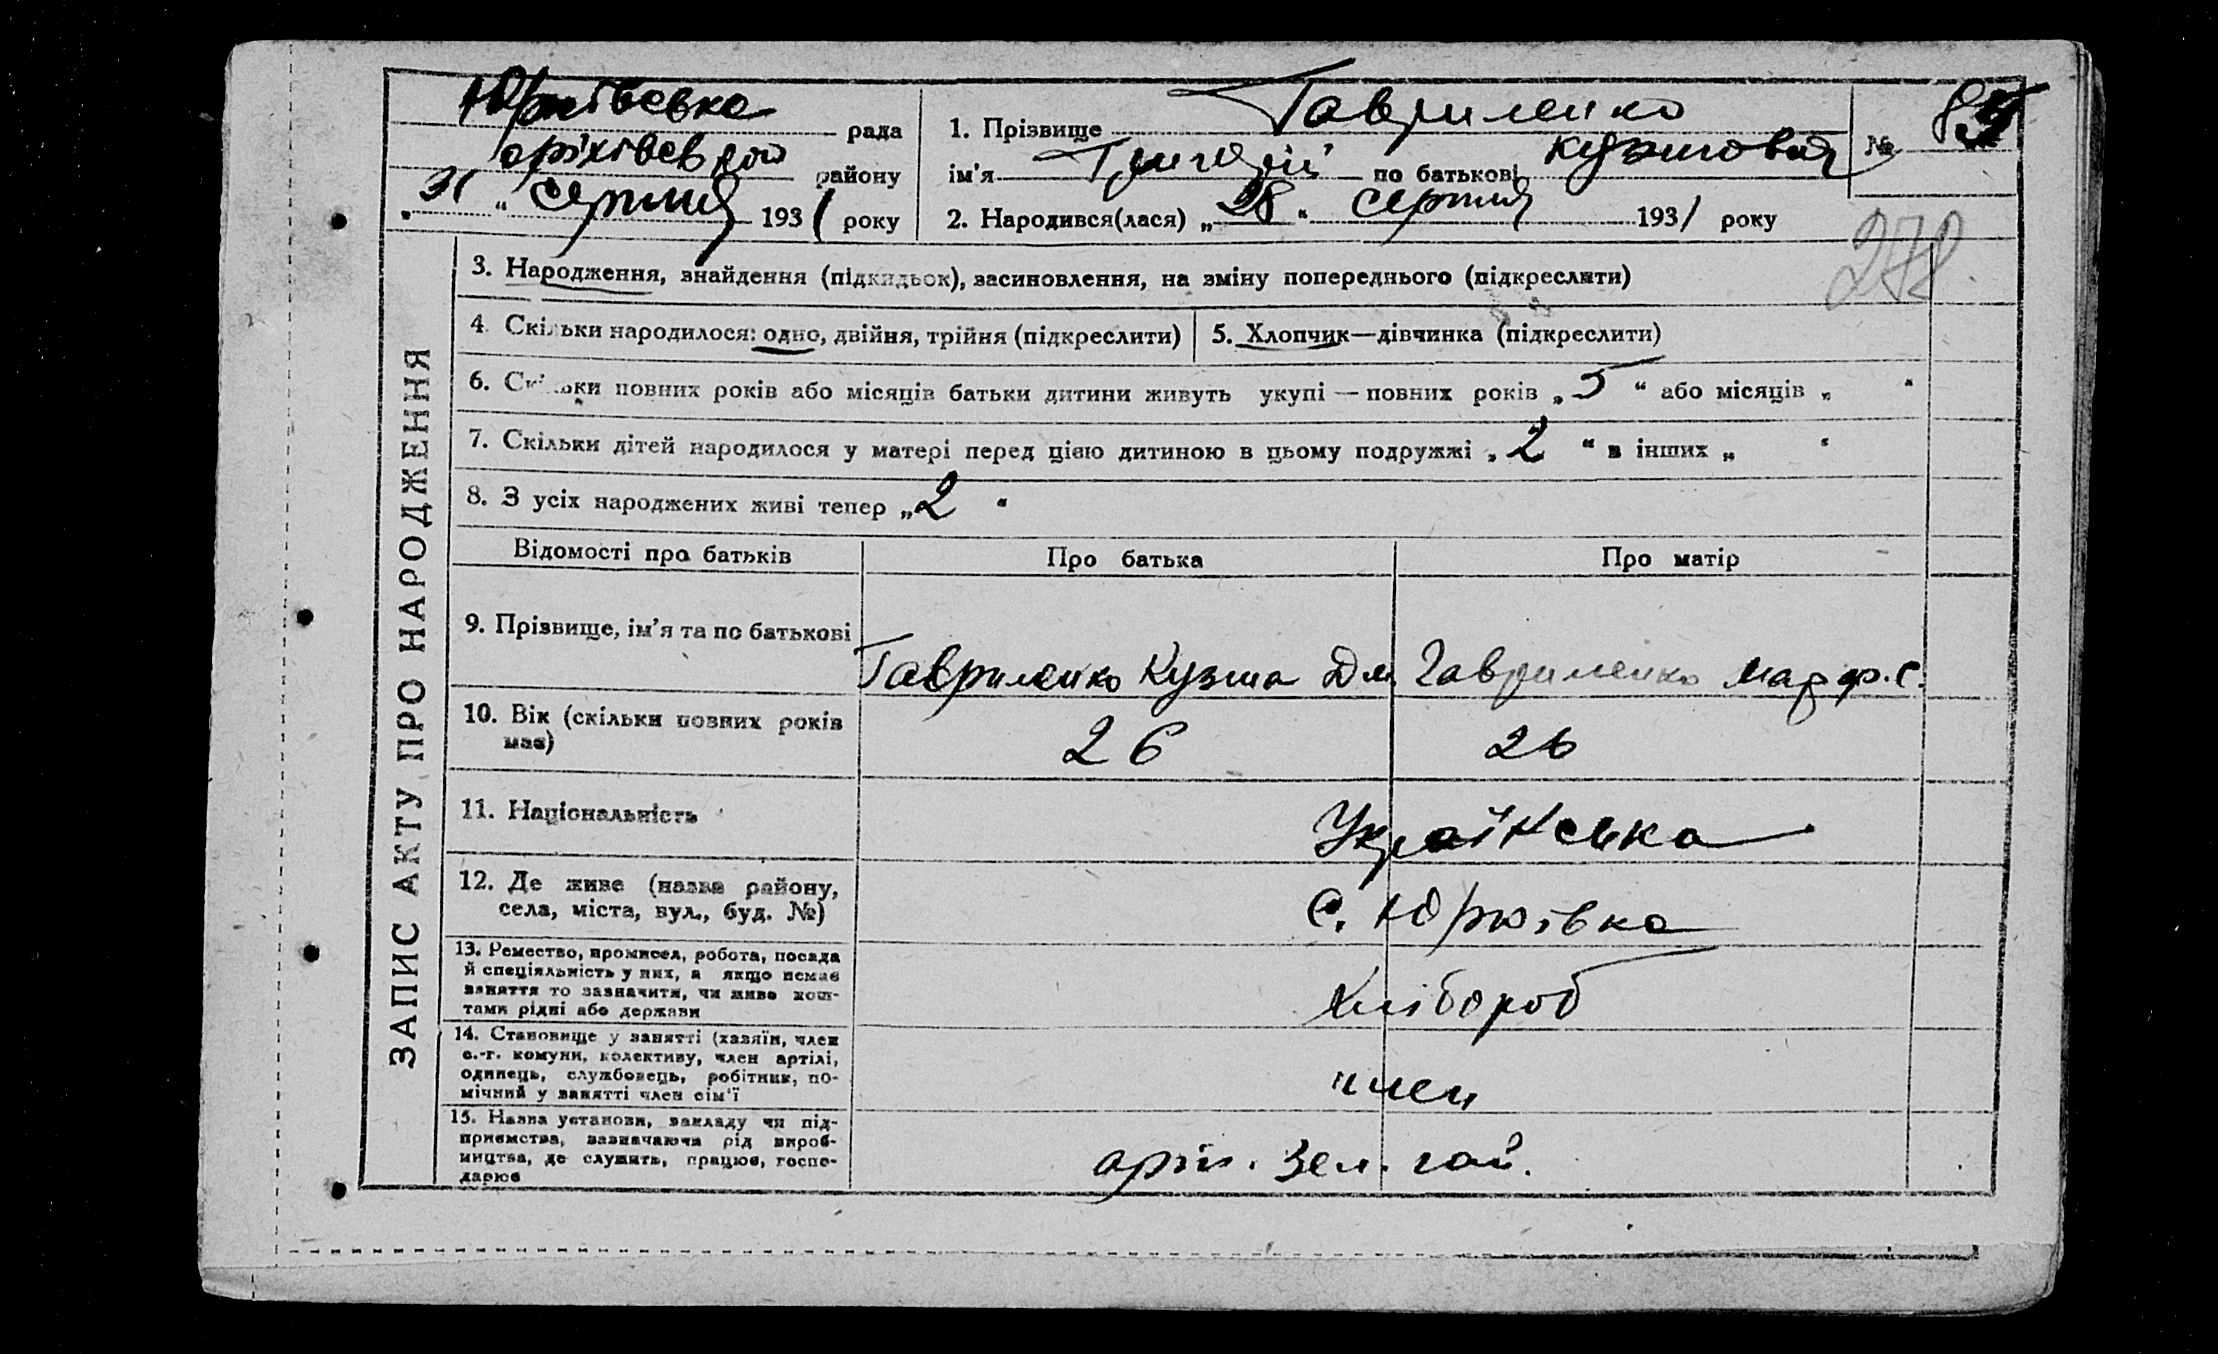 Юрківська рада
оріхівського району
„31“ серпня 1931 року
1. Прізвище Гавриленко
ім'я Григорій по батькові Кузмович
№
2. Народився(лася) „28“ серпня 1931 року
278
ЗАПИС АКТУ ПРО НАРОДЖЕННЯ
3. Народження, знайдення (підкидьок), засиновлення, на зміну попереднього (підкреслити)
4. Скільки народилося: одно, двійня, трійня (підкреслити)
5. Хлопчик—дівчинка (підкреслити)
6. Скільки повних років або місяців батьки дитини живуть укупі — повних років „5“ або місяців „ “
7. Скільки дітей народилося у матері перед цією дитиною в цьому подружжі „2“ в інших „ “
8. З усіх народжених живі тепер „2“
Відомості про батьків Про батька Про матір
9. Прізвище, ім'я та по батькові
Гавриленко Кузма Дм. Гавриленко Марф. С.
10. Вік (скільки повних років
має)
26 26
11. Національність
Українська
12. Де живе (назва району,
села, міста, вул., буд. №)
с. Юрківка
13. Ремество, промисел, робота, посада
й спеціяльність у них, а якщо немає
заняття то зазначити, чи живе кош-
тами рідні або держави
Хлібороб
14. Становище у занятті (хазяїн, член
с.-г. комуни, колективу, член артілі,
одинець, службовець, робітник, по-
мічний у занятті член сім'ї
член
15. Назва установи, закладу чи під-
приємства, зазначаючи рід вироб-
ництва, де служить, працює, госпо-
дарює
Зел. гай.